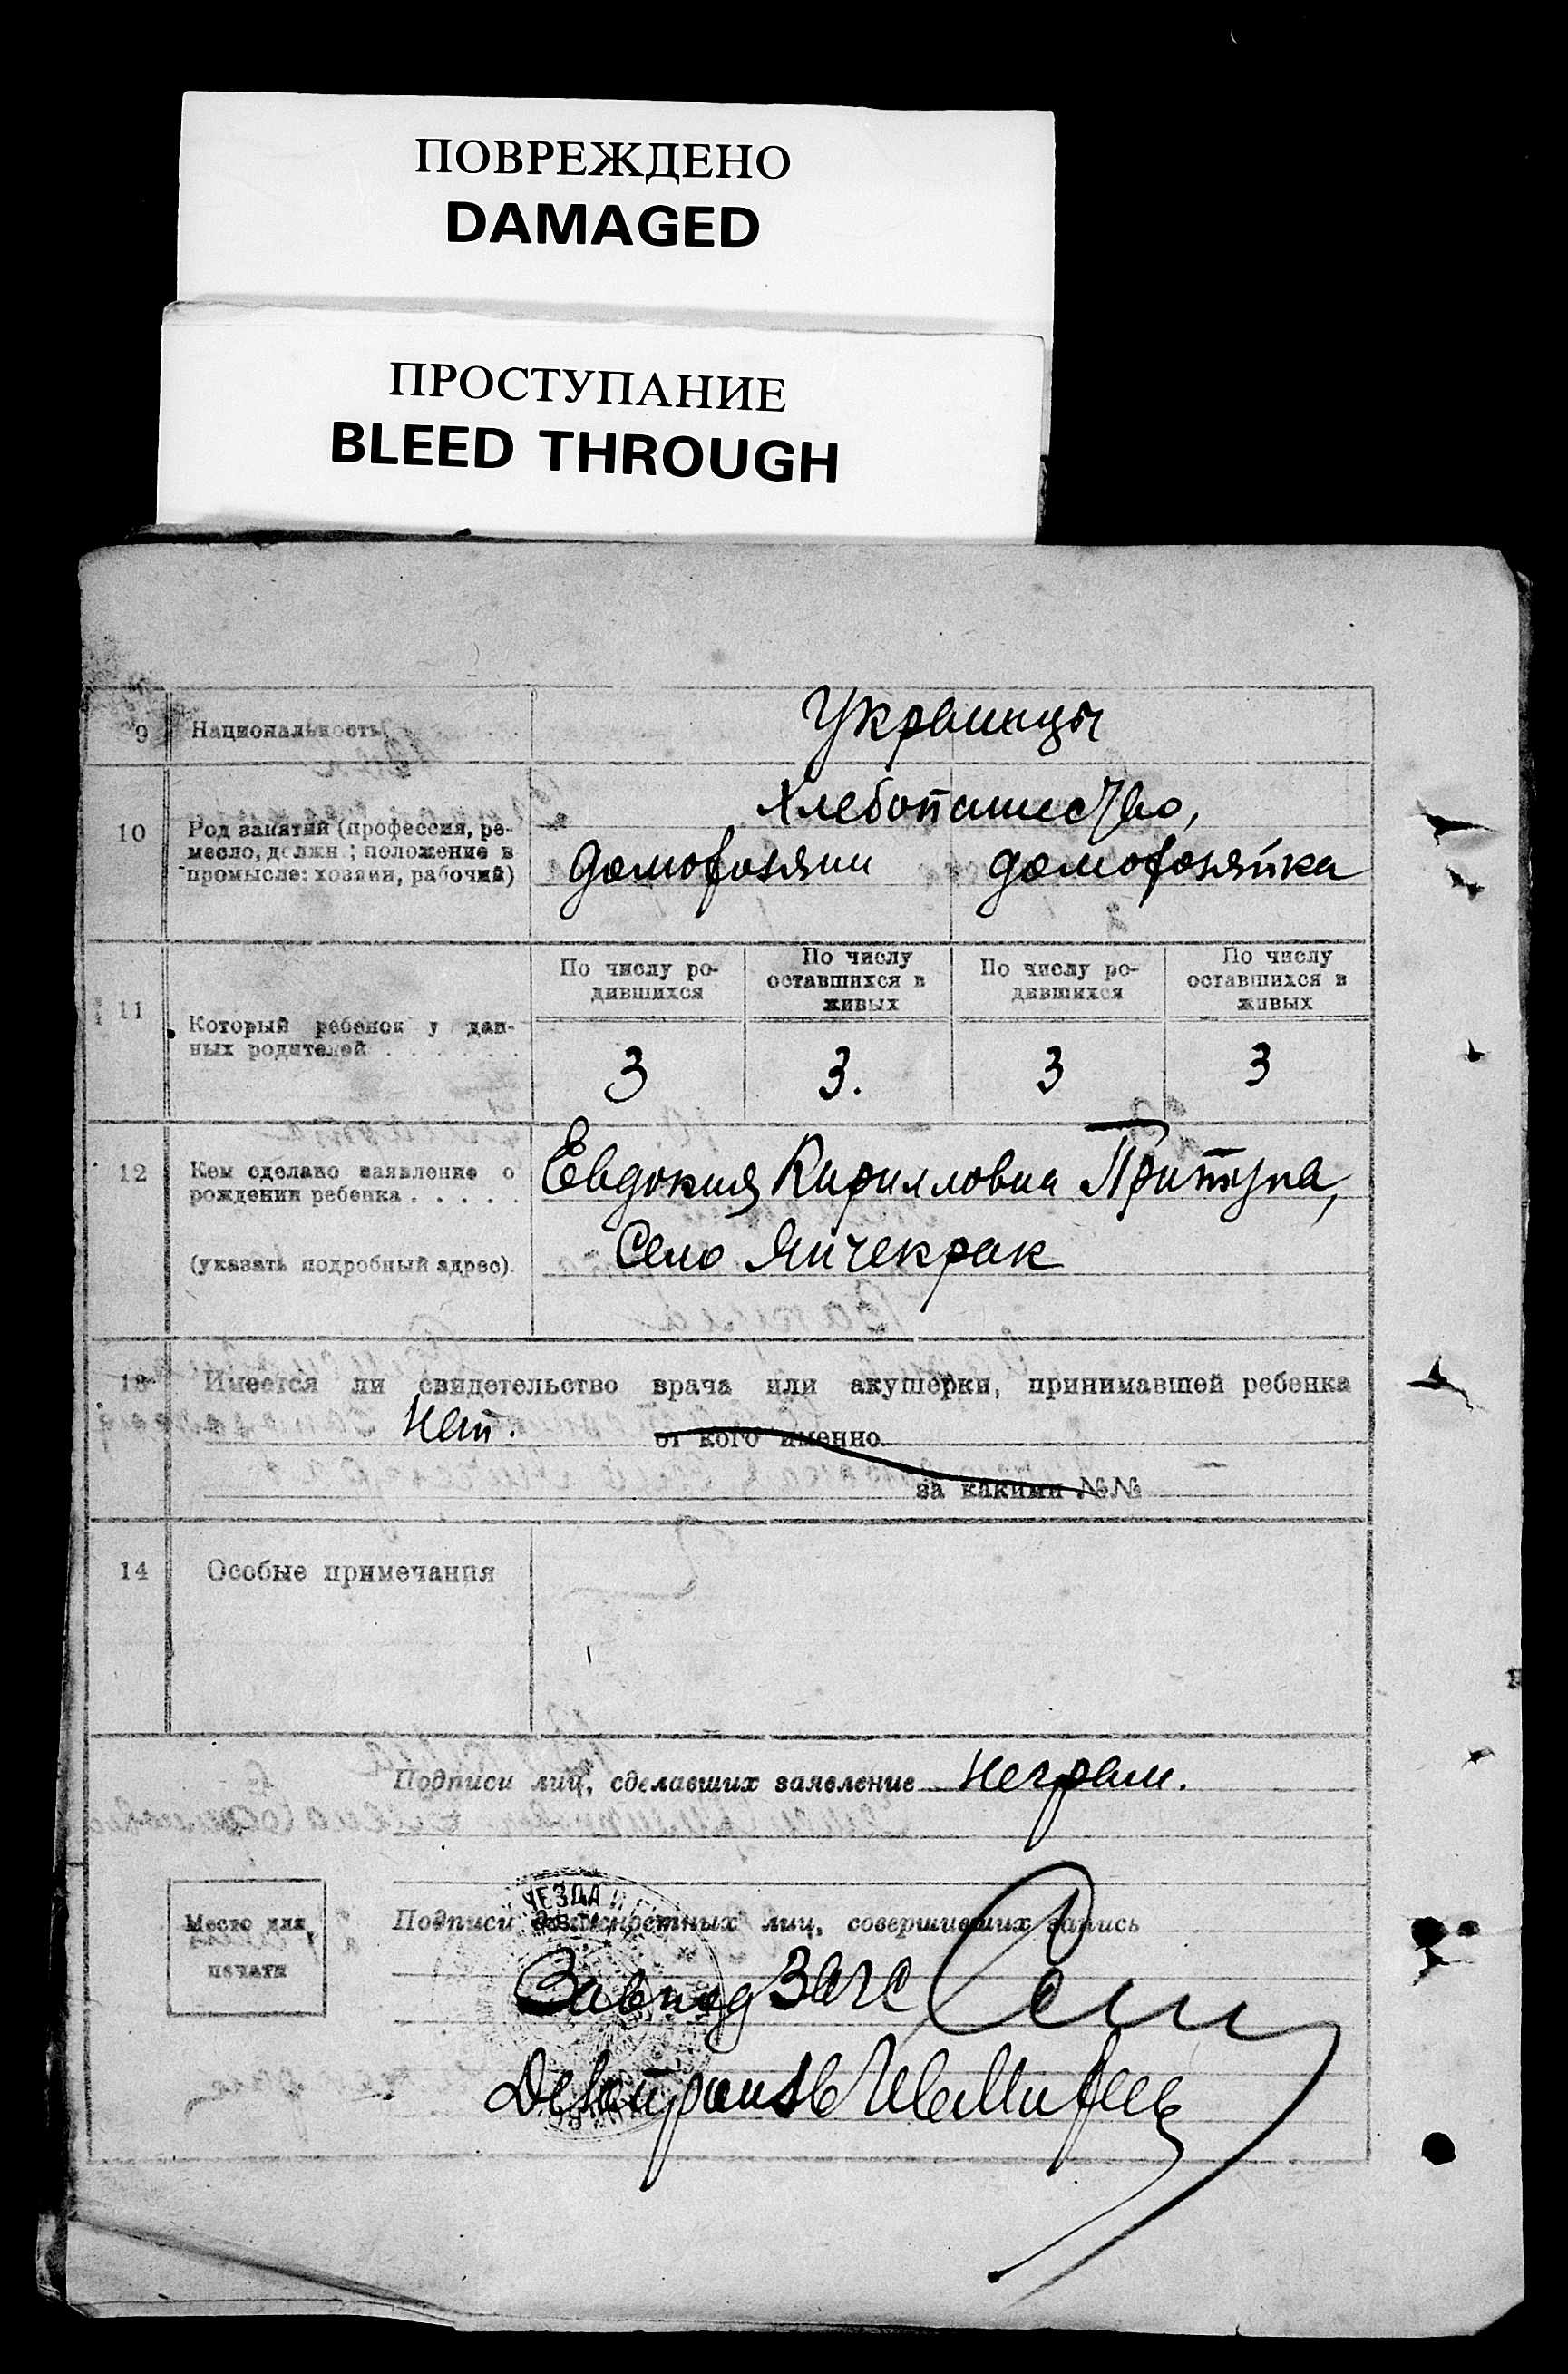 ПОВРЕЖДЕНО
DAMAGED
ПРОСТУПАНИЕ
BLEED THROUGH
9 Национальность Украинцы
10 Род занятий (профессия, ре-
месло, должн.; положение в
промысле: хозяин, рабочий)
Хлебопашество,
домохозяин домохозяйка
11 Который ребенок у дан-
ных родителей . . . . . . .
По числу ро-
дившихся
По числу
оставшихся в
живых
По числу ро-
дившихся
По числу
оставшихся в
живых
3 3. 3 3
12 Кем сделано заявление о
рождении ребенка . . . . .
(указать подробный адрес).
Евдокия Кирилловна Притупа,
Село Янчекрак
13 Имеется ли свидетельство врача или акушерки, принимавшей ребенка
Нет. от кого именно
за какими №№
14 Особые примечания
Подписи лиц, сделавших заявление Неграм.
Место для
печати
УЕЗДА
Подписи должностных лиц, совершивших запись
Завподзагс